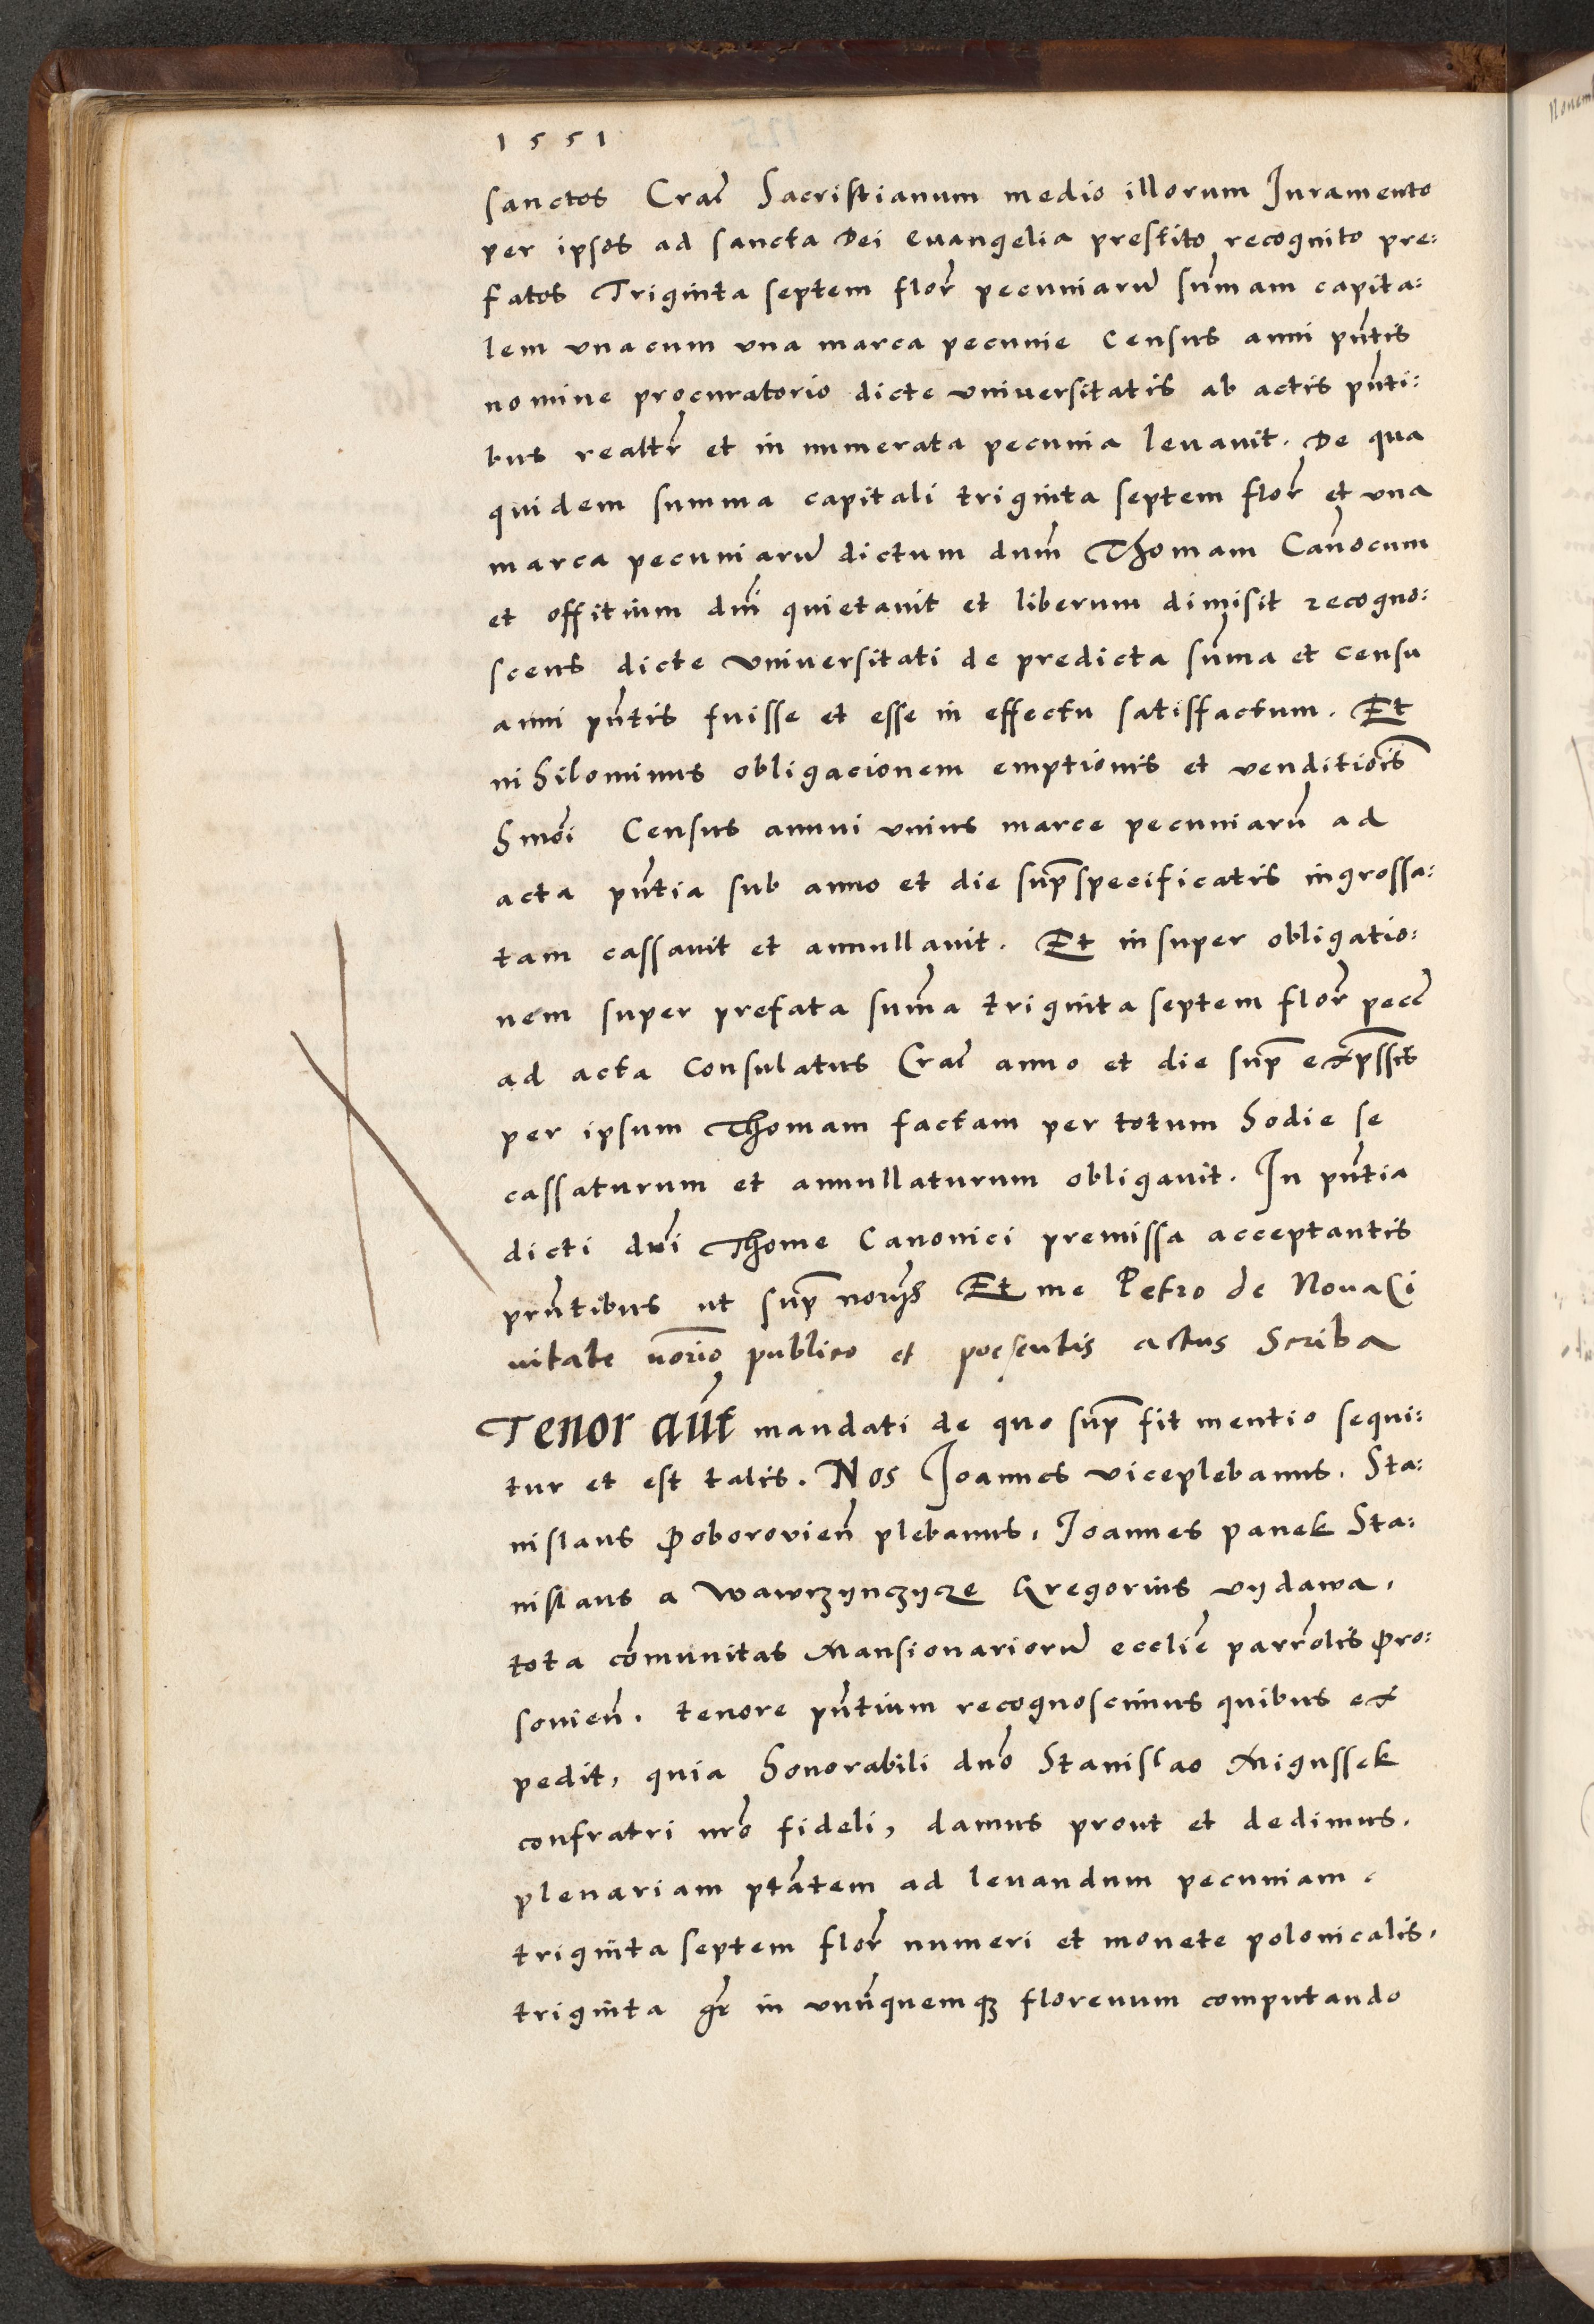 1551
sanctos Crac̄ Sacristianum medio illorum Juramento
per ipsos ad sancta Dei Euangelia prestito recognito pre:
fatos Triginta septem flor̄ pecuniarū sum̄am capita:
lem vnacum vna marca pecunie Census anni pn̄tis
nomine procuratorio dicte vniuersitatis ab actis pn̄ti:
bus realtr̄ et in numerata pecunia leuauit. De qua
quidem summa capitali triginta septem flor̄ et vna
marca pecuniarū dictum dnūm Thomam Can̄ocum
et offitium dnī quietauit et liberum dimisit recogno:
scens dicte vniuersitati de predicta sum̄a et censu
anni pn̄tis fuisse et esse in effectu satisfactum. Et
nihilominus obligacionem emptionis et venditiōis
hmōi Census annui vnius marce pecuniarū ad
acta pn̄tia sub anno et die sup̄specificatis ingrossa:
tam cassauit et annullauit. Et insuper obligatio:
nem super prefata sum̄a triginta septem flor̄ pec̄
ad acta Consulatus Crac̄ anno et die sup̄ exp̄ssis
per ipsum Thomam factam per totum hodie se
cassaturum et annullaturum obligauit. In pn̄tia
dicti dnī Thome Canonici premissa acceptantis
prn̄tibus ut sup̄ Et me Petro de Noua Ci
uitate no̅rio publico et actus Scriba
Tenor aūt mandati de quo sup̄ fit mentio sequi:
tur et est talis. Nos Joannes viceplebanus. Sta:
nislaus Poborovien̄ plebanus, Joannes panek Sta:
nislaus a Wawrzynczycze Gregorius vydawa,
tota cōmunitas Mansionariorū ecclīe parrōlis Pro:
souien̄. tenore pn̄tium recognoscimus quibus ex
pedit, quia honorabili dnō Stanislao Migussek
confratri nrō fideli, damus prout et dedimus.
plenariam ptātem ad leuandum pecuniam
triginta septem flor̄ numeri et monete polonicalis,
triginta gr̄ in vnūquemqꝫ florenum computando